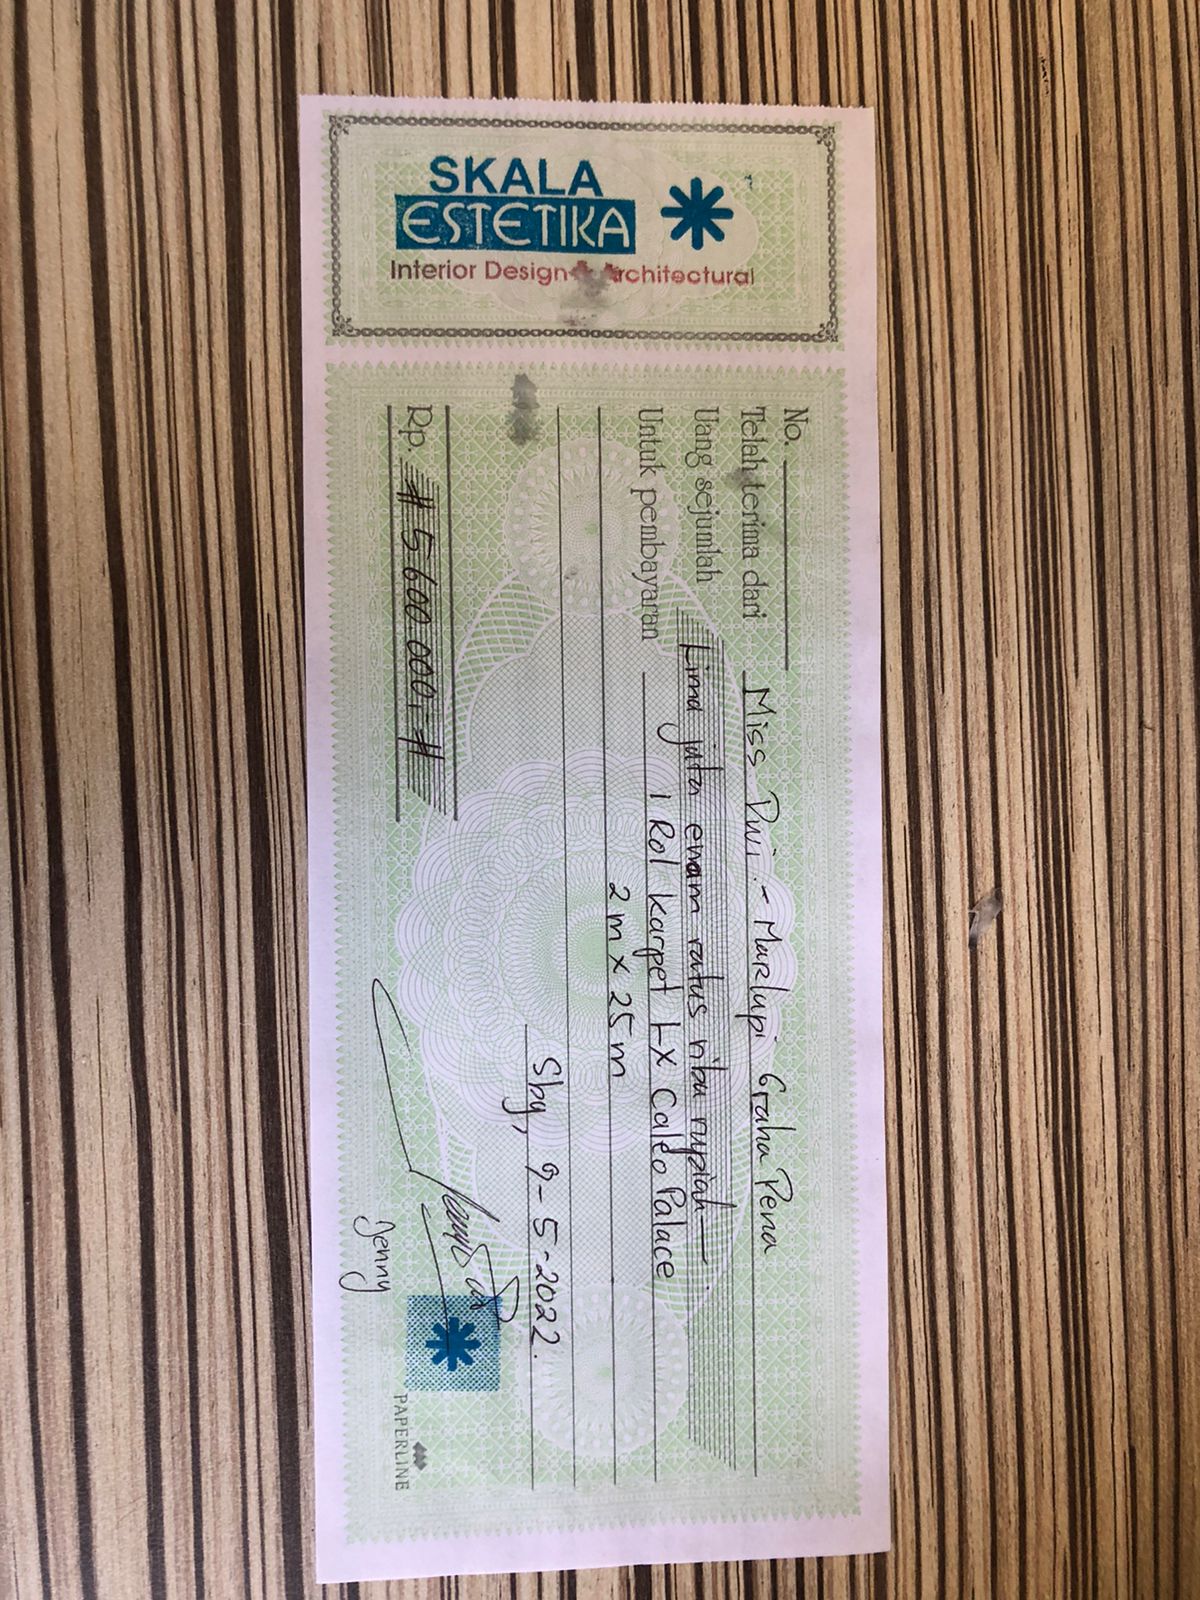 SKALA
ESTETIKA
Interior Design Architectural
No.
Telah terima dari Miss Dwi - Marlupi Graha Pena
Uang sejumlah Lima juta enam ratus ribu rupiah
Untuk pembayaran 1 Rol karpet LX Caleo Palace
2 m x 25 m
Sby, 9-5-2022.
Rp. # 5 600 000,- #
Jenny
PAPERLINE